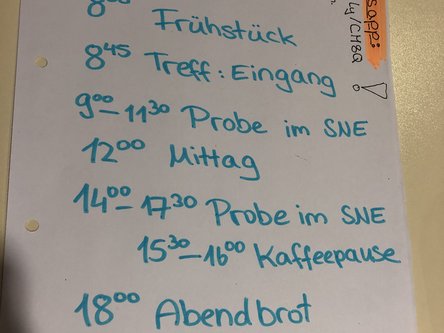 8⁰⁰ Frühstück
8⁴⁵ Treff: Eingang
9⁰⁰–11³⁰ Probe im SNE
12⁰⁰ Mittag
14⁰⁰–17.³⁰ Probe im SNE
15³⁰–16⁰⁰ Kaffeepause
18⁰⁰ Abendbrot
sapp:
ly/CM8Q